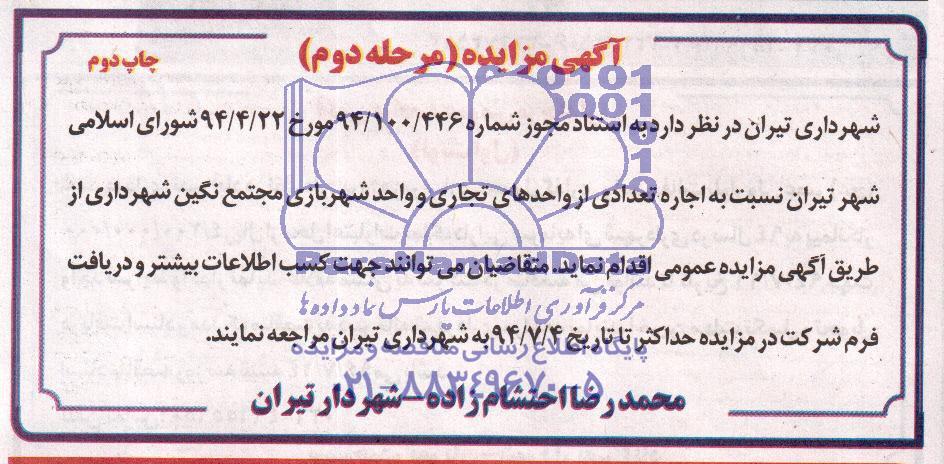 آگهی مزایده (مرحله دوم)
چاپ دوم
شهرداری تیران در نظر دارد به استناد مجوز شماره ۹۴/۱۰۰/۴۴۶ مورخ ۹۴/۴/۲۲ شورای اسلامی
شهر تیران نسبت به اجاره تعدادی از واحدهای تجاری و واحد شهربازی مجتمع نگین شهرداری از
طریق آگهی مزایده عمومی اقدام نماید. متقاضیان می توانند جهت کسب اطلاعات بیشتر و دریافت
مرکز فرآوری اطلاعات پارس نماد داده ها
فرم شرکت در مزایده حداکثر تا تاریخ ۹۴/۷/۴ به شهرداری تیران مراجعه نمایند.
پایگاه اطلاع رسانی مناقصه و مزایده
۰۲۱-۸۸۳۴۹۶۷۰-۵
محمدرضا احتشام زاده - شهردار تیران